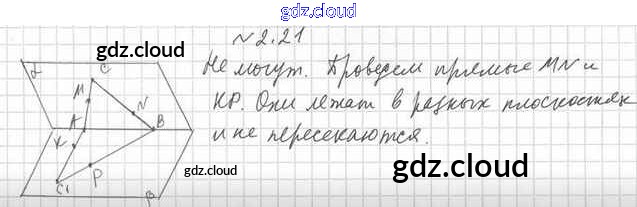 gdz.cloud
№2.21
gdz.cloud
Не могут. Проведем прямые MN и
KP. Они лежат в разных плоскостях
и не пересекаются.
gdz.cloud
gdz.cloud
α
C
M
N
A
B
K
P
C₁
β